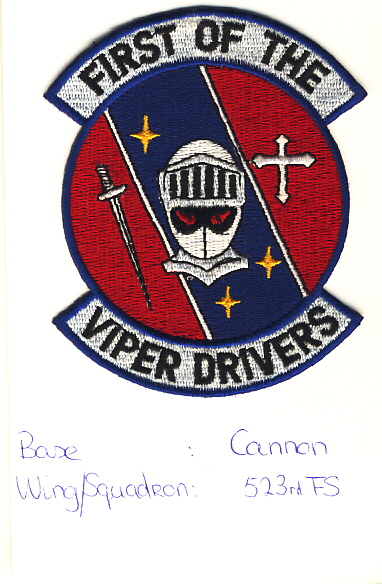 FIRST OF THE
VIPER DRIVERS
Base : Cannon
Wing/Squadron: 523rd FS